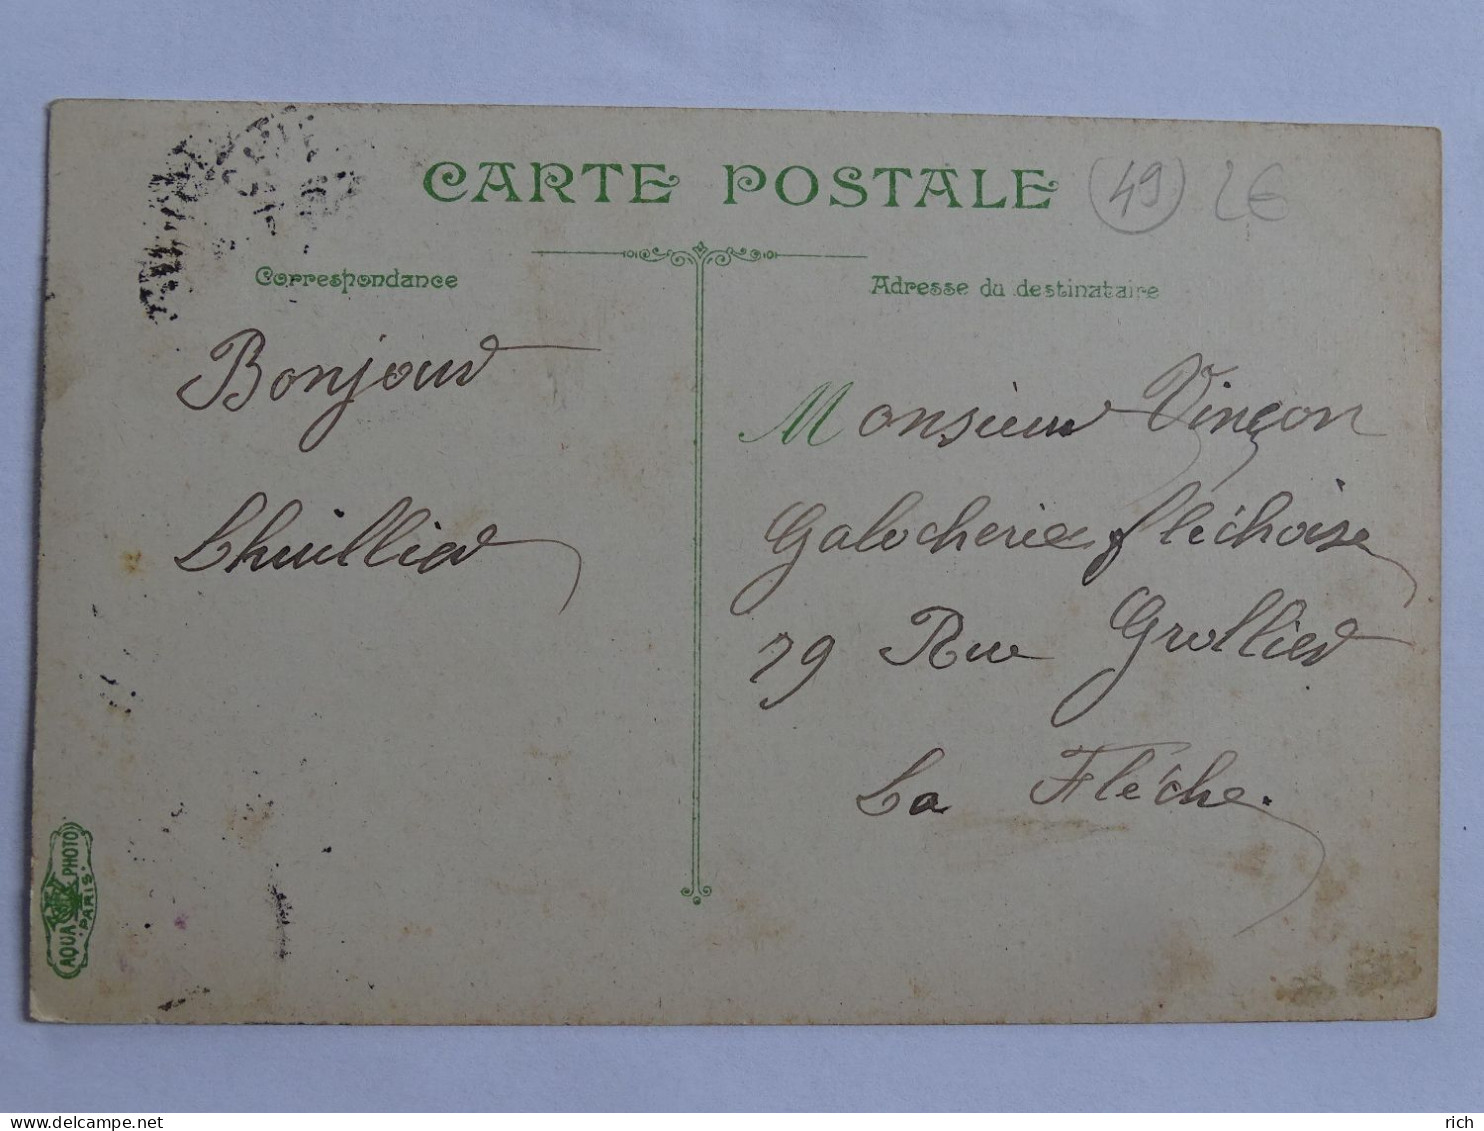 CARTE POSTALE
49 2€
Correspondance
Bonjour
Lhuillier
Adresse du destinataire
Monsieur Vinçon
Galocherie fléchoise
29 Rue Grollier
La Fléche.
AQUA PHOTO
PARIS
www.delcampe.net
rich